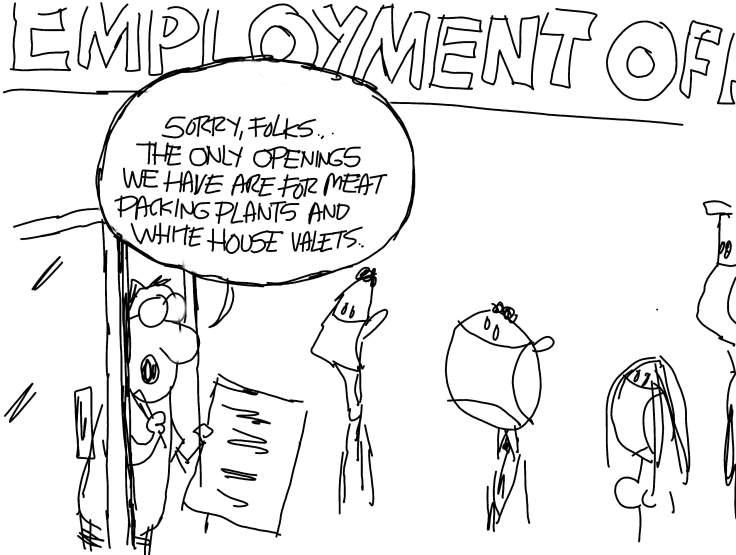 EMPLOYMENT OFF
SORRY, FOLKS...
THE ONLY OPENINGS
WE HAVE ARE FOR MEAT
PACKING PLANTS AND
WHITE HOUSE VALETS..